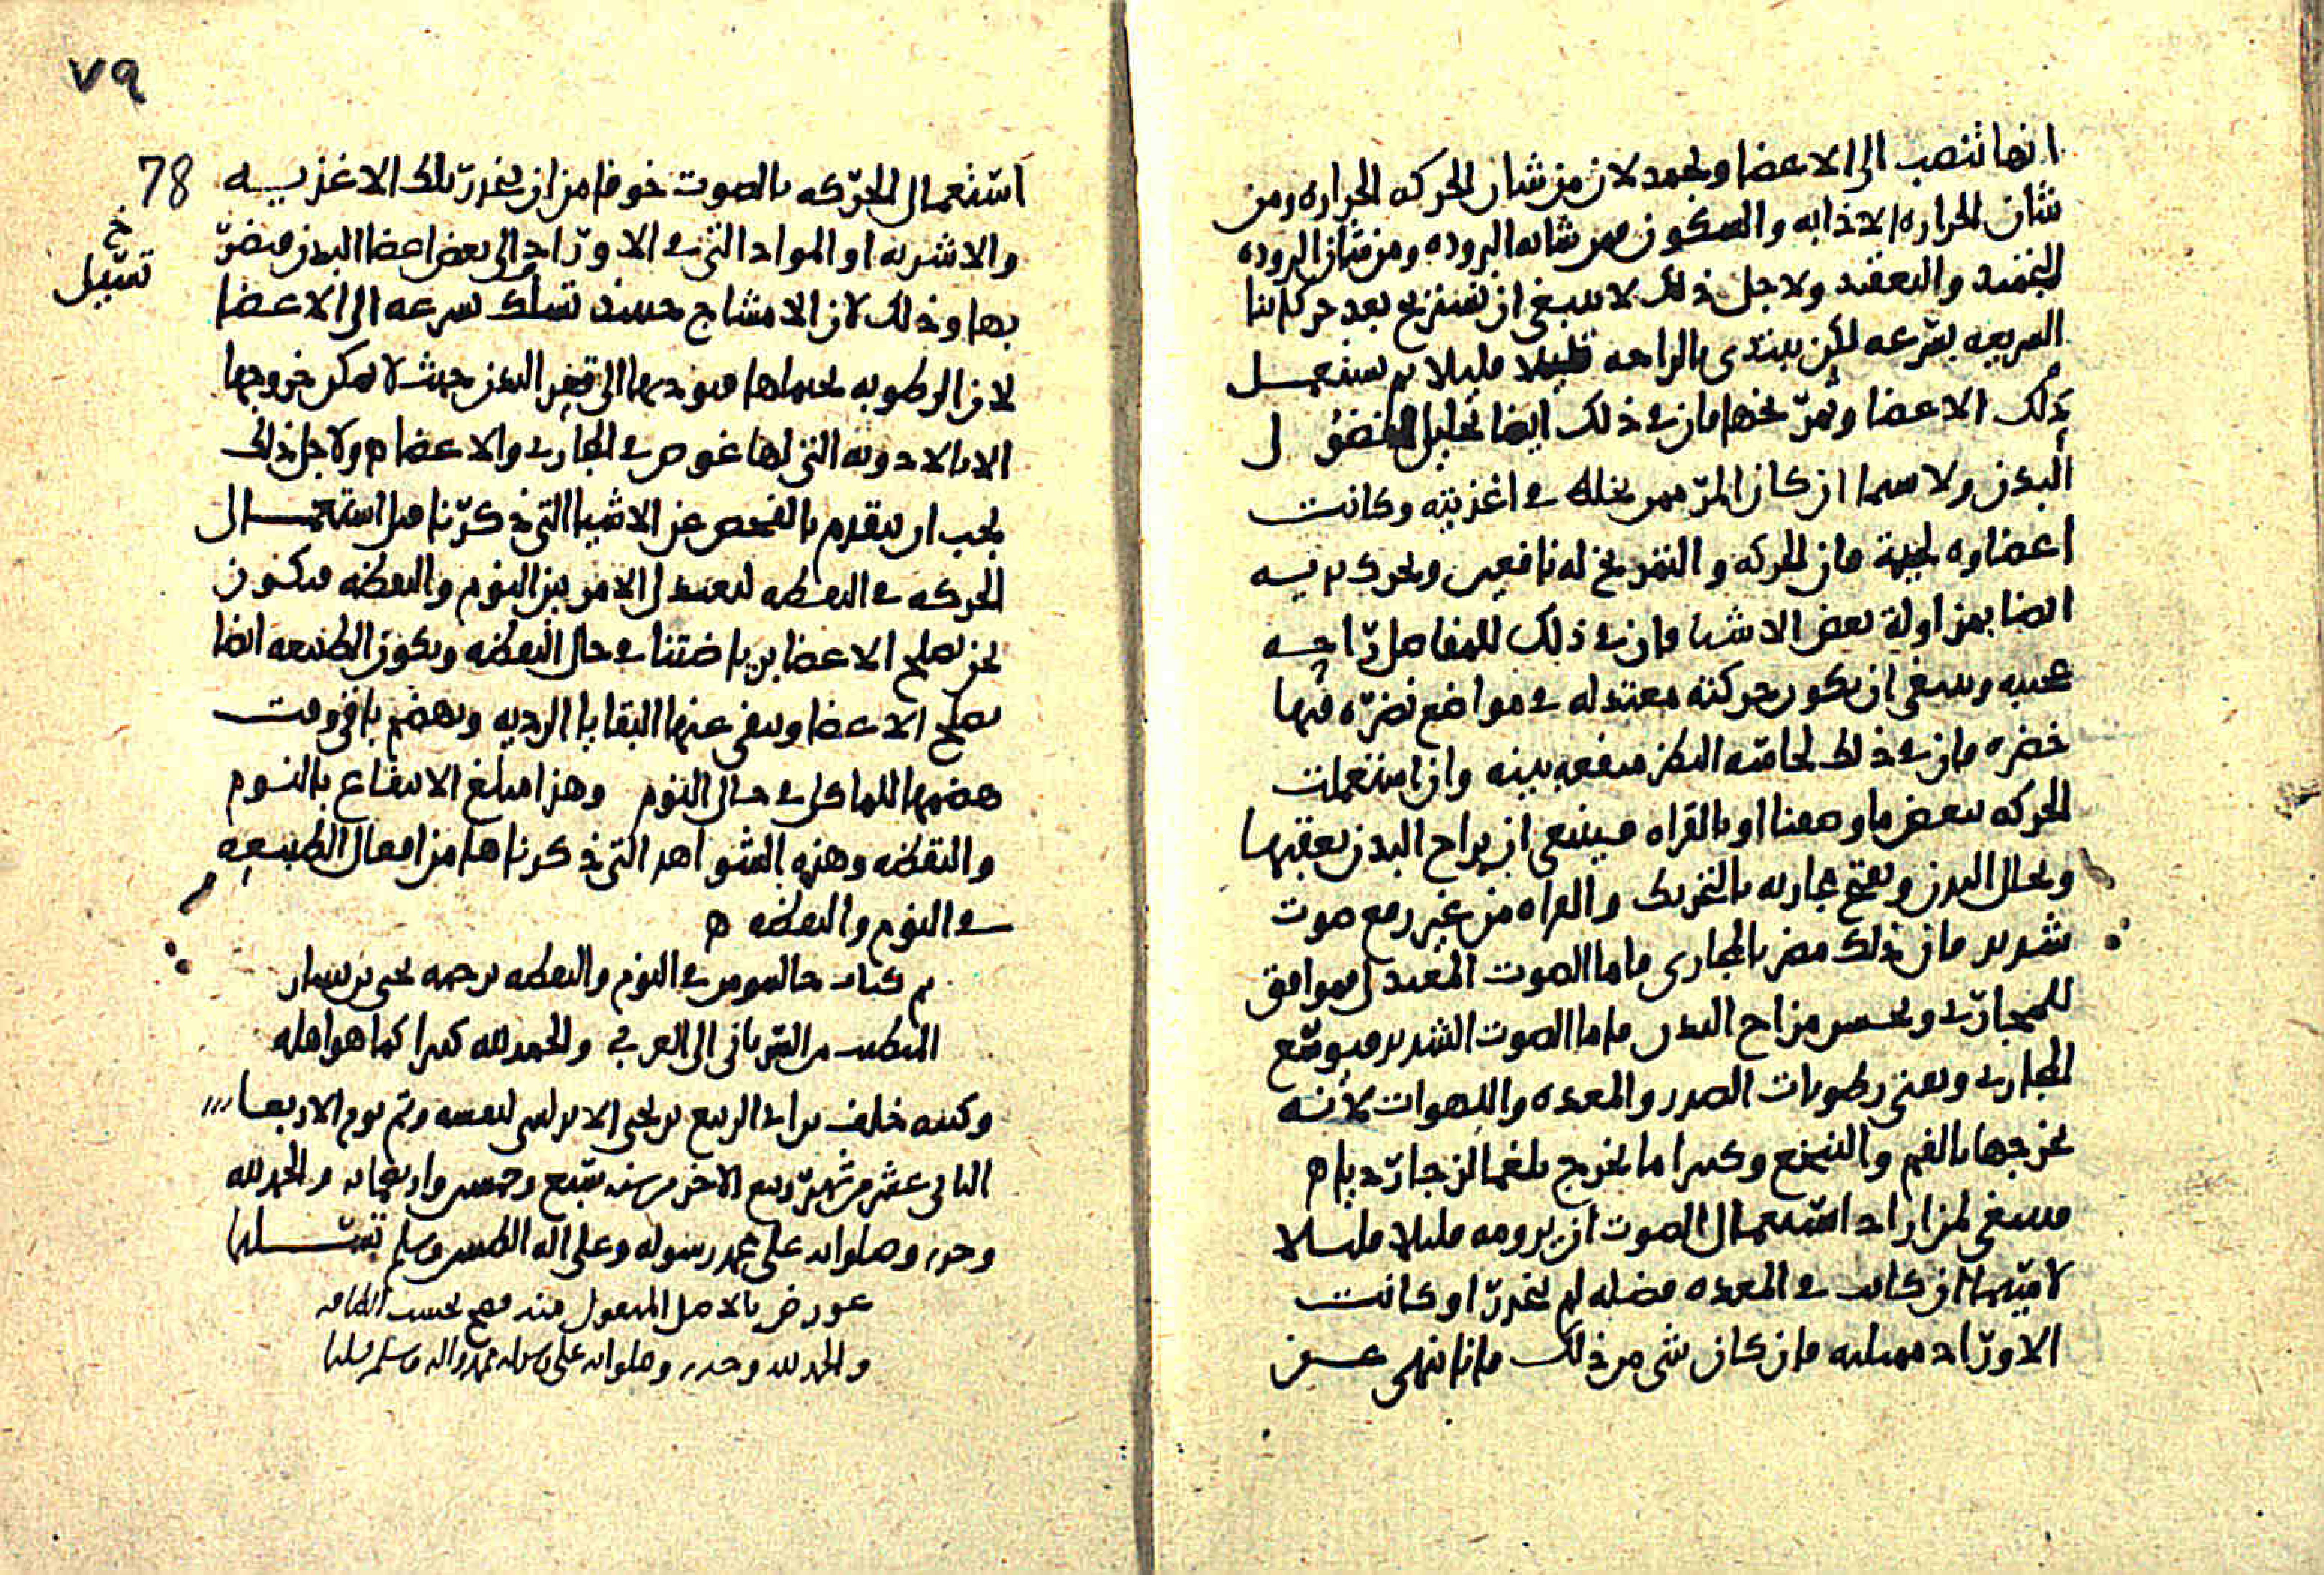 انها تنصب الى الاعضا وتجمد لان من شان الحركه الحراره ومن
شان الحراره الاذابه والسكون فمن شانه البروده ومن شان البروده
التجميد والتعقيد ولاجل ذلك لا ينبغي ان نستريح بعد حركاتنا
السريعه بسرعه لكن نبتدى بالراحه قليلا قليلا ثم نستعمل
دلك الاعضا وتمريخها فان في ذلك ايضا تحليل لفضول
البدن ولا سيما ان كان المر ممن يخلط في اغذيته وكانت
اعضاوه لحيمة فان الحركه والتمريخ له نافعين وتحرك يديه
ايضا بمزاولة بعض الاشيا فان في ذلك للمفاصل راحه
عجيبه وينبغي ان تكون حركته معتدله في مواضع نضره فيها
خضره فان في ذلك لحاسه النظر منفعه بينه وان استعملت
الحركه ببعض ما وصفنا او بالقراه فينبغي ان يراح البدن بعقبها
ويحلل البدن ويفتح مجاريه بالتحريك والقراه من غير رفع صوت
شديد فان ذلك مضر بالمجارى فاما الصوت المعتدل فموافق
للمجارى ويحسن مزاج البدن فاما الصوت الشديد فيوسع
المجارى ويفنى رطوبات الصدر والمعده واللهوات لانه
يخرجها بالفم والتنخع وكثيرا ما يخرج بلغما لزجا رديا ه
فينبغي لمن اراد استعمال الصوت ان يرومه قليلا قليلا
لا سيما ان كانت في المعده فضله لم تنحدر او كانت
الاوراد ممتليه فان كان شى من ذلك فانا ننهى عن
٧٩
78
استعمال الحركه بالصوت خوفا من ان ينحدر بتلك الاغذيه
والاشربه او المواد التى في الاوراد الى بعض اعضا البدن فيضر
خ
تسيل
بها وذلك لان الامشاج حينيذ تسلك بسرعه الى الاعضا
لان الرطوبه تحملها فيوديها الى قعر البدن حيث لا يمكن خروجها
الا بالادويه التى لها غوص في المجارى والاعضا ه ولاجل ذلك
يجب ان نتقدم بالفحص عن الاشيا التى ذكرنا قبل استعمال
الحركه في اليقظه ليعتدل الامر بين النوم واليقظه فنكون
نحن نصلح الاعضا برياضتنا في حال اليقظه وتكون الطبيعه ايضا
تصلح الاعضا وتنفى عنها البقايا الرديه وتهضم باقى وقت
هضمها للماكل في حال النوم وهذا مبلغ الانتفاع بالنوم
واليقظه وهذه الشواهد التى ذكرناها من افعال الطبيعه
في النوم واليقظه ه
تم كتاب جالينوس في النوم واليقظه ترجمه يحيى بن
المتطبب من السريانى الى العربي والحمد لله كثيرا كما هو اهله
وكتبه خلف بن ابى الربيع بن يحيى لنفسه وتم يوم الاربعا
الثانى عشر من شهر ربيع الاخر من سنه سبع وخمسين واربعمايه والحمد لله
وحده وصلواته على محمد رسوله وعلى اله الطيبين وسلم تسليما
عورض بالاصل المنقول منه فصح بحسب الطاقه
والحمد لله وحده وصلواته على رسوله محمد واله وسلم تسليما